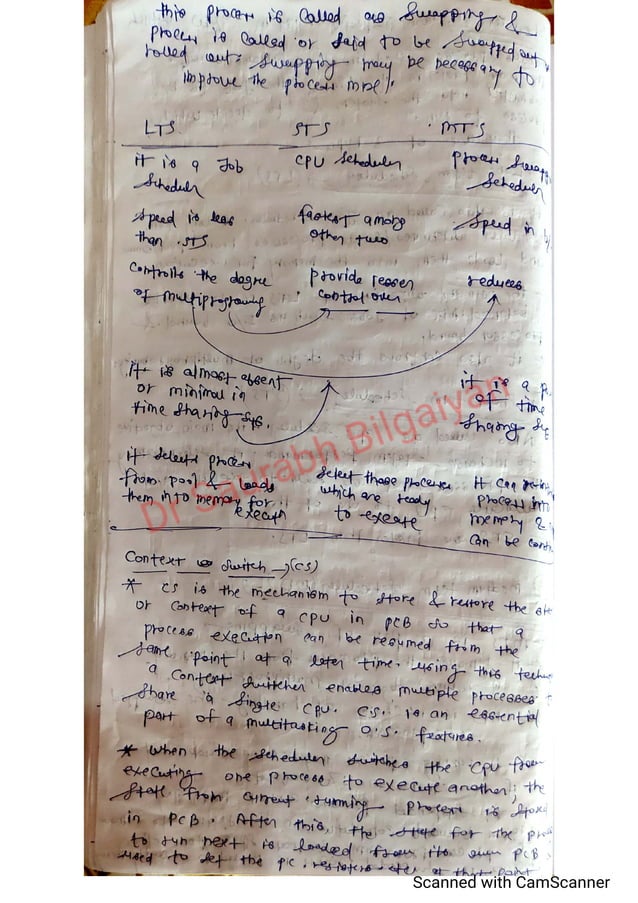 this process is called as swapping &
process is called or said to be swapped out
rolled out. swapping may be necessary to
improve the process mix.
LTS STS MTS
it is a Job CPU scheduler process swap
scheduler scheduler
speed is less fastest among speed in
than STS other two
controlls the degree provide lesser reduces
of multiprograming control over
it is almost absent it is a p
or minimal in of time
time sharing sys. sharing sys
it selects process
from pool & loads select those processes it can re
them into memory for which are ready process into
execution to execute memory &
can be cont
Context switch → (CS)
* CS is the mechanism to store & restore the
or context of a CPU in PCB so that a
process execution can be resumed from the
same point at a later time. using this techn
a context switcher enables multiple processes
share a single CPU. C.S. is an essential
part of a multitasking O.S. features.
* when the scheduler switches the CPU from
executing one process to execute another, the
state from current running process is stored
in PCB. After this, the state for the pro
to run next is loaded from its own PCB
used to set the PC, registers etc. at that point
Dr Saurabh Bilgaiyan
Scanned with CamScanner